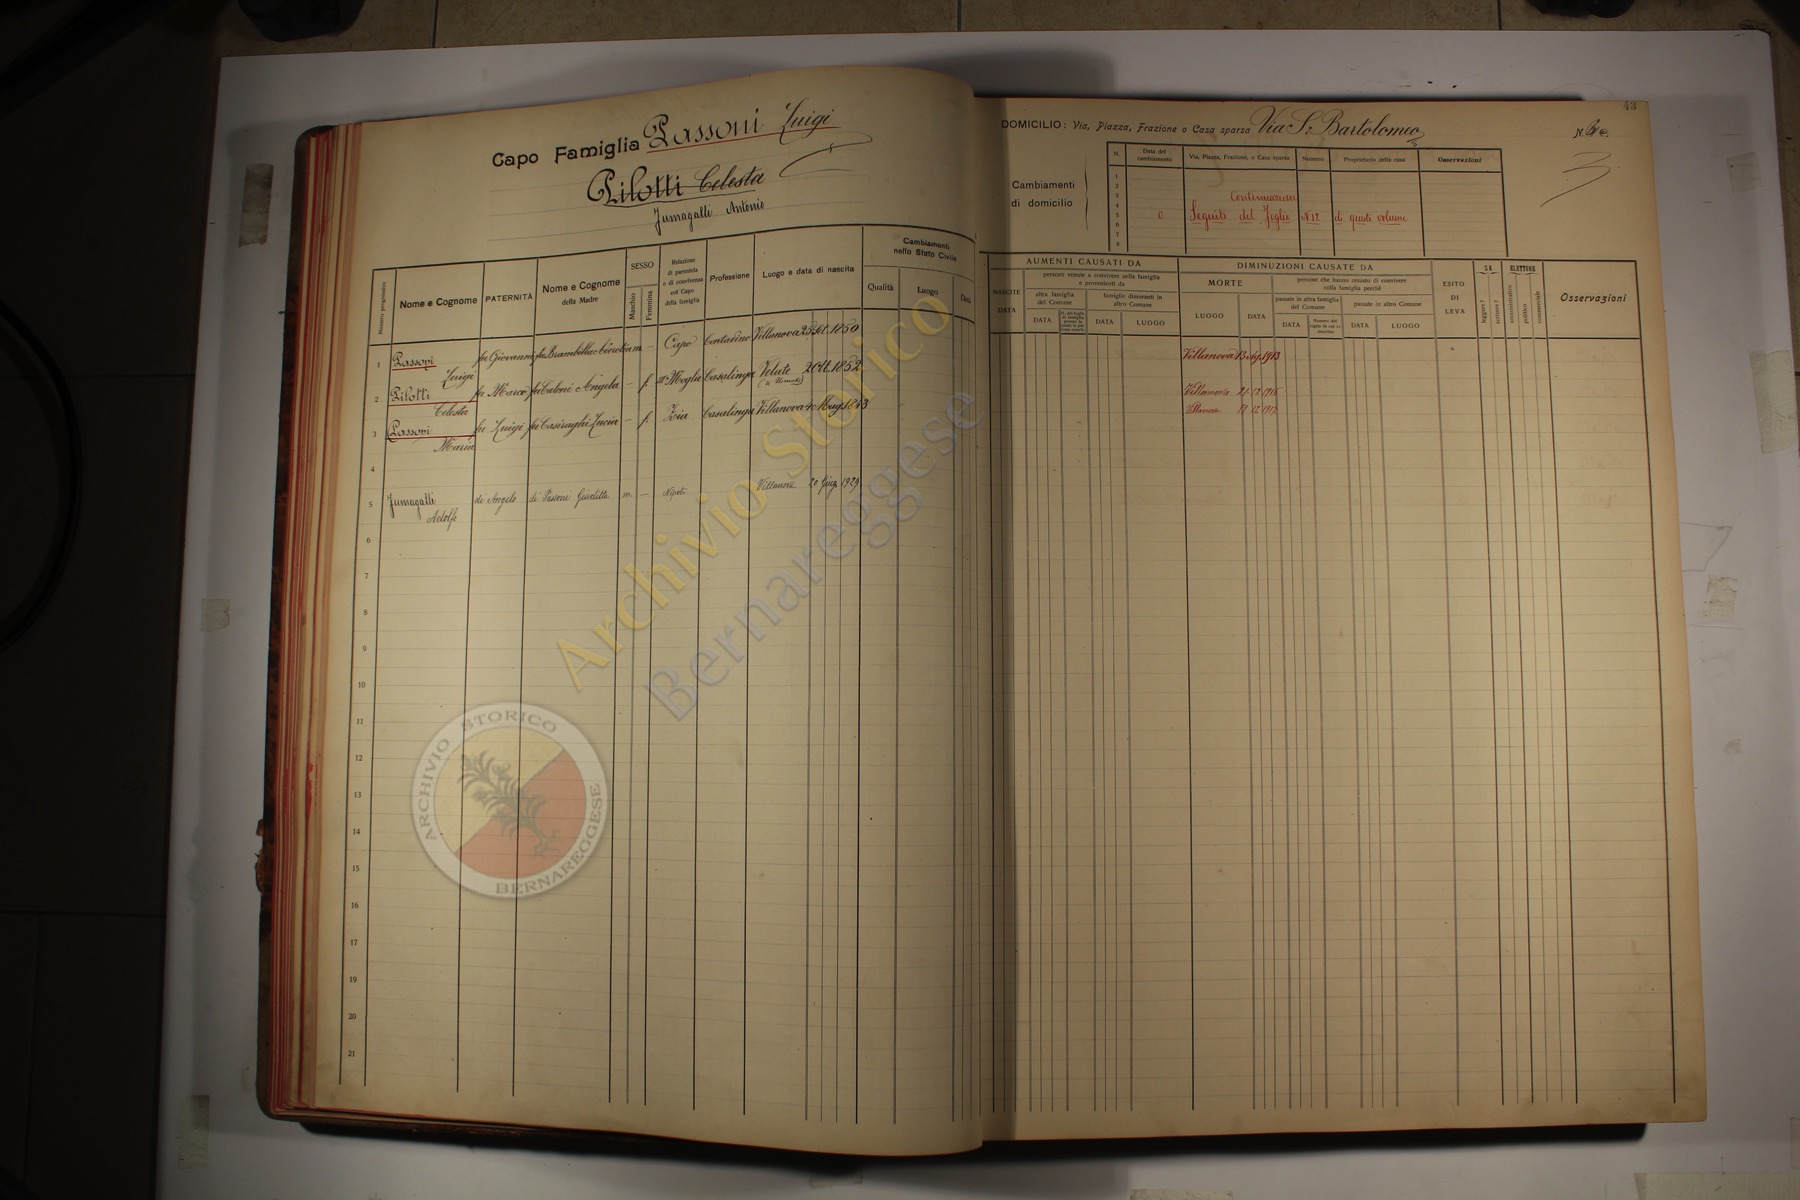 Capo Famiglia Passoni Luigi
Pilotti Celesta
Fumagalli Antonio
Numero progressivo
Nome e Cognome
PATERNITÀ
Nome e Cognome della Madre
SESSO
Maschio
Femmina
Relazione di parentela o di convivenza col Capo della famiglia
Professione
Luogo e data di nascita
Cambiamenti nello Stato Civile
Qualità
Luogo
Data
1 Passoni Luigi fu Giovanni fu Brambilla m. – Capo Contadino Villanova 25 1850
2 Pilotti Celesta fu Marco fu Angela – f. Moglie Casalinga Velate 2 Ott. 1852
3 Passoni Maria fu Luigi fu Casiraghi Lucia – f. Zia Casalinga Villanova 4 Mag. 1843
4
5 Fumagalli Adolfo di Angelo di Passoni Giuditta m. – Nipote Villanova 20 Giug. 1929
6
7
8
9
10
11
12
13
14
15
16
17
18
19
20
21
43
DOMICILIO: Via, Piazza, Frazione o Casa sparsa Via S. Bartolomeo N.
3
Cambiamenti di domicilio
N.
Data del cambiamento
Via, Piazza, Frazione, o Casa sparsa
Numero
Proprietario della casa
Osservazioni
1
2
3
4
5
6
7
8
Continuazione
Seguito del Foglio N 12 di questo volume
AUMENTI CAUSATI DA
NASCITE
DATA
persone venute a convivere nella famiglia e provenienti da
altra famiglia del Comune
DATA
famiglie dimoranti in altro Comune
DATA
LUOGO
DIMINUZIONI CAUSATE DA
MORTE
LUOGO
DATA
persone che hanno cessato di convivere colla famiglia perchè
passate in altra famiglia del Comune
DATA
passate in altro Comune
DATA
LUOGO
ESITO DI LEVA
SA
leggere?
scrivere?
ELETTORE
amministrativo
politico
commerciale
Osservazioni
Villanova 13 1913
Villanova 21.12.1916
Villanova 19.12.1917
Archivio Storico
Bernareggese
ARCHIVIO STORICO
BERNAREGGESE